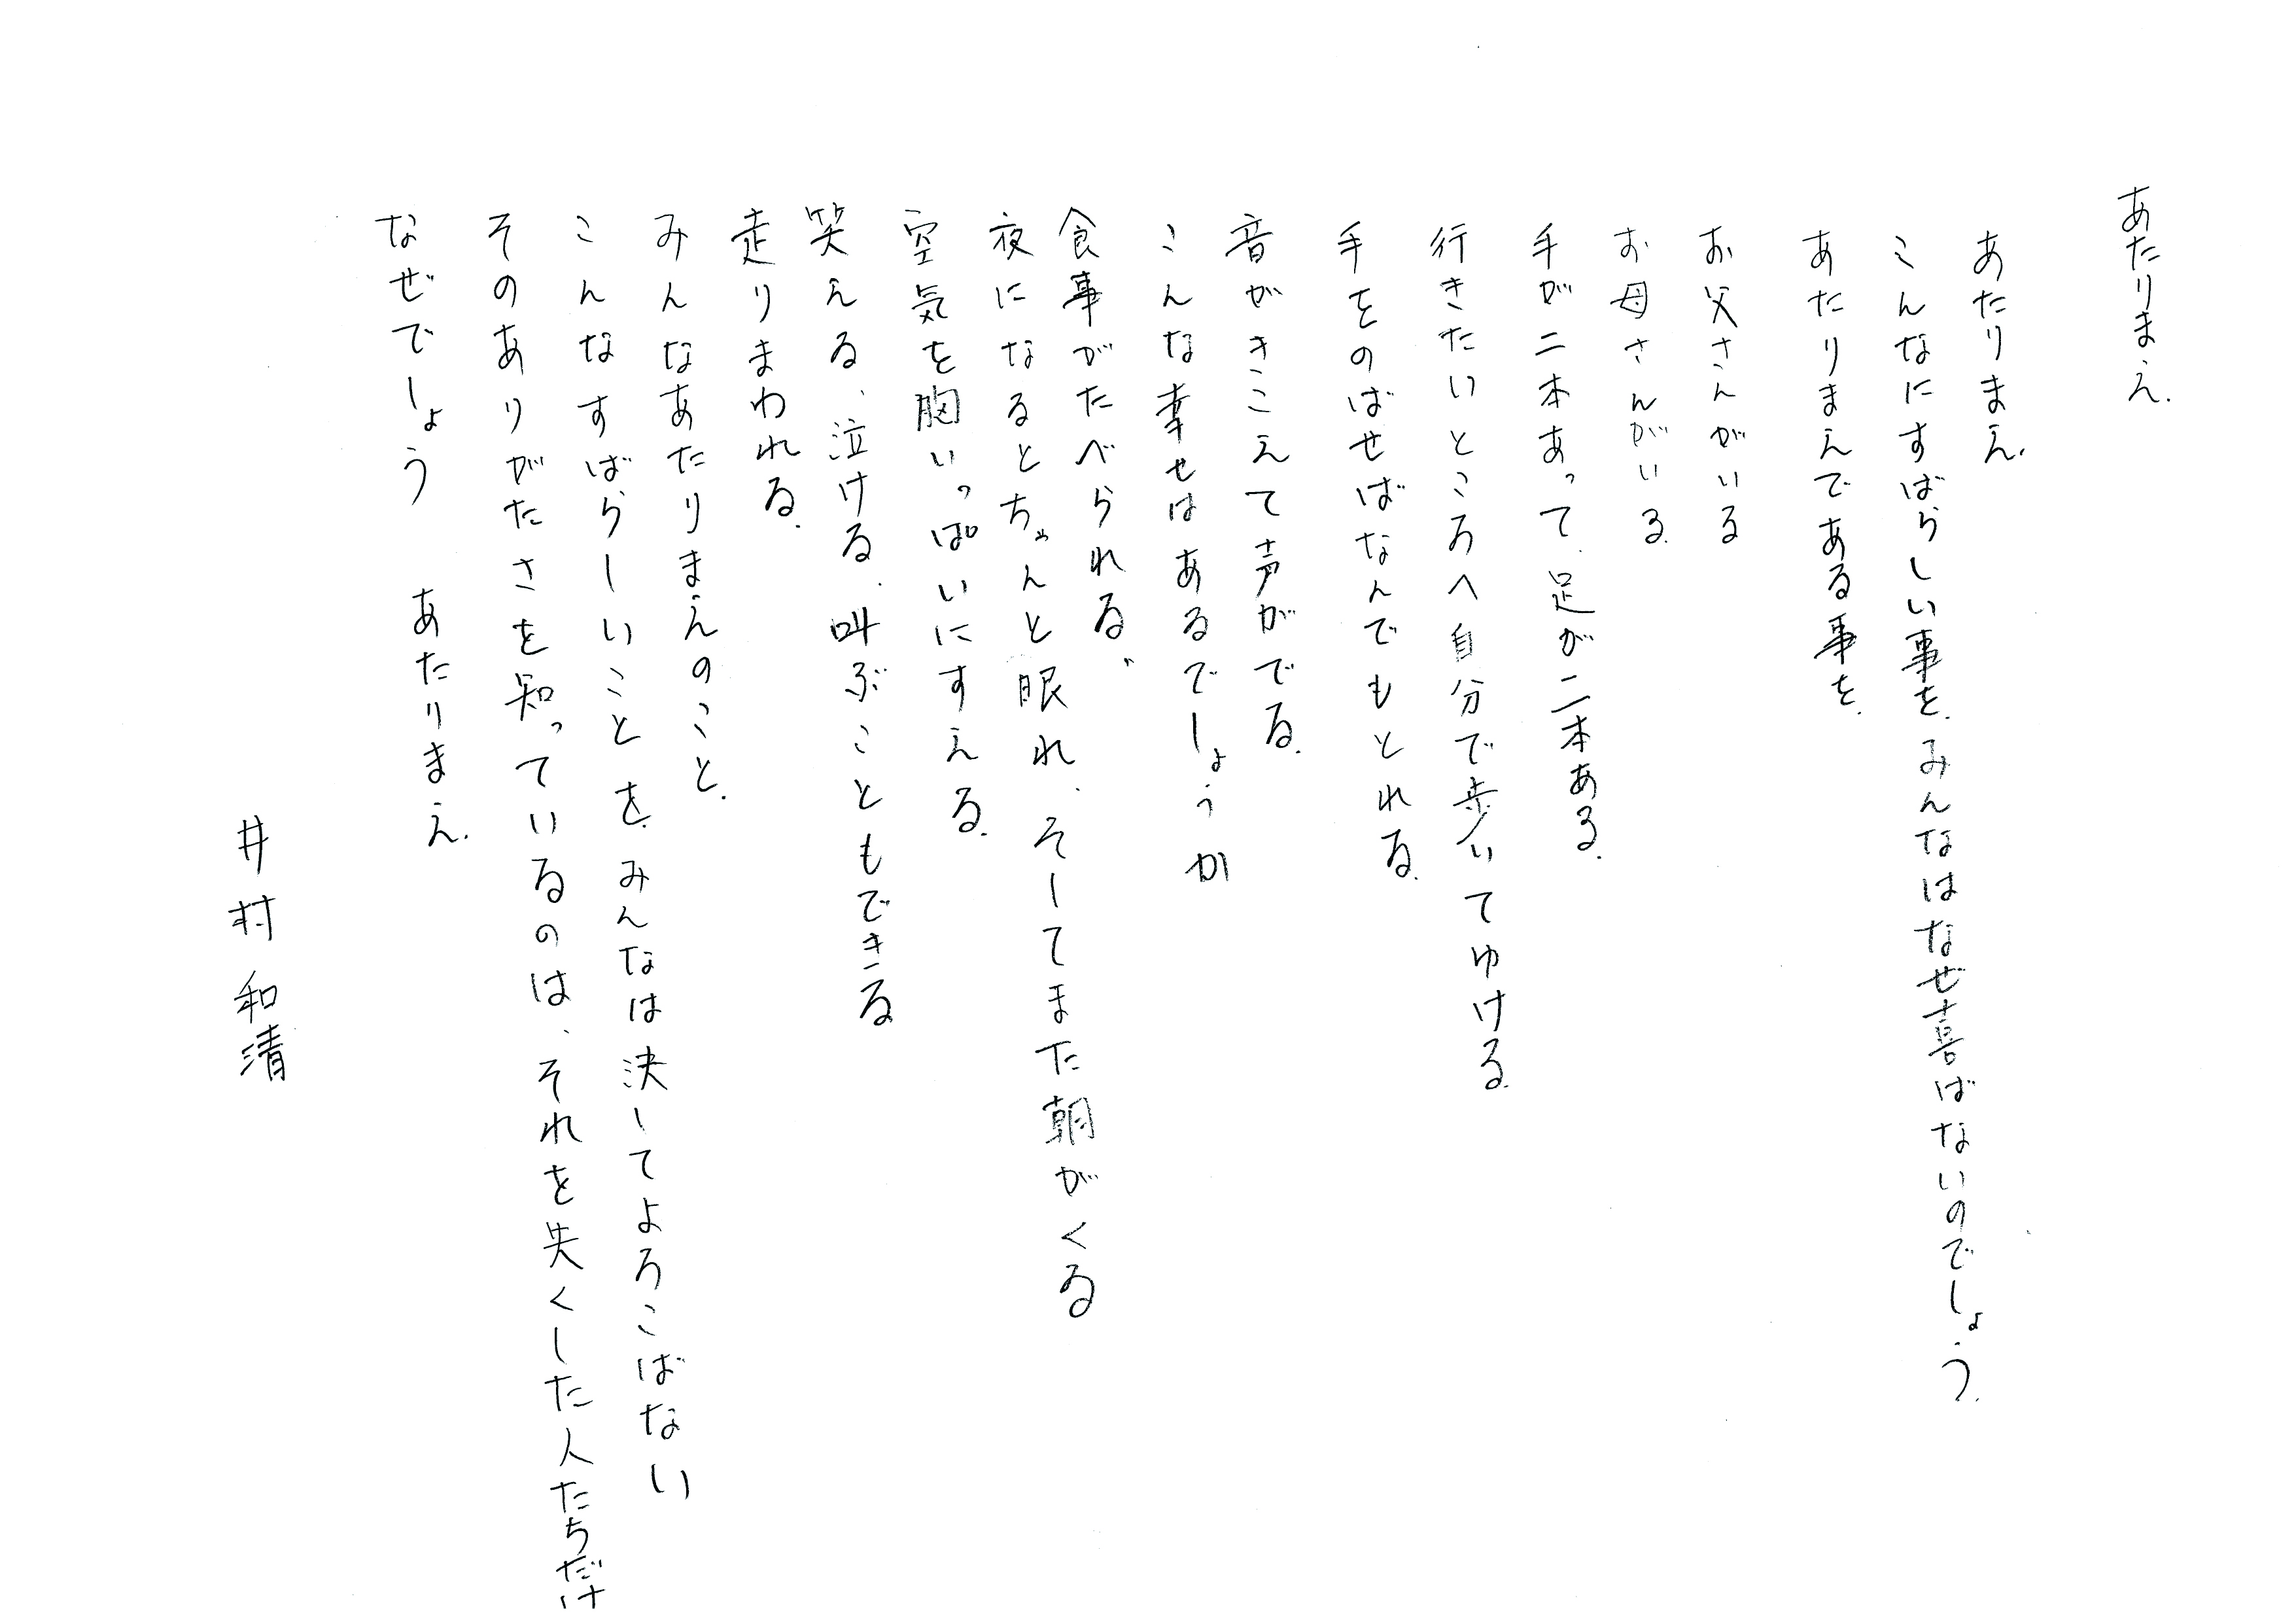 あたりまえ.
あたりまえ.
こんなにすばらしい事を.みんなはなぜ喜ばないのでしょう.
あたりまえである事を.
お父さんがいる
お母さんがいる.
手が二本あって.足が二本ある.
行きたいところへ自分で歩いてゆける.
手をのばせばなんでもとれる.
音がきこえて声がでる.
こんな幸せはあるでしょうか
食事がたべられる.
夜になるとちゃんと眠れ.そしてまた朝がくる
空気を胸いっぱいにすえる.
笑える、泣ける.叫ぶこともできる
走りまわれる.
みんなあたりまえのこと.
こんなすばらしいことを.みんなは決してよろこばない
そのありがたさを知っているのは、それを失くした人たちだけ
なぜでしょう　あたりまえ.
井村和清